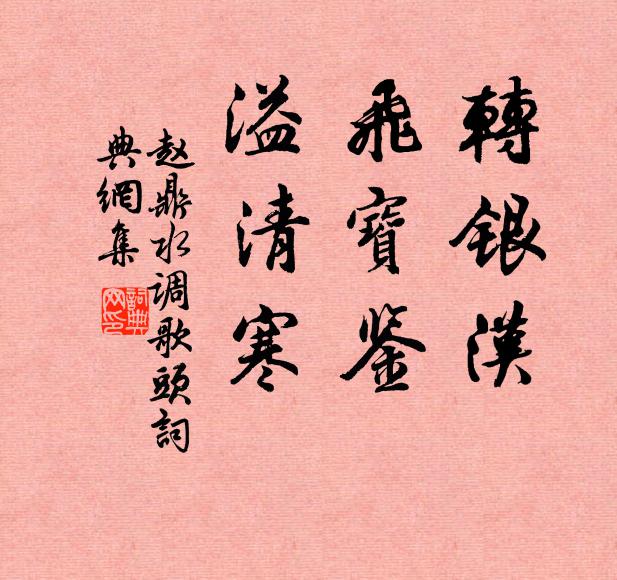 轉銀漢
飛寶鉴
溢清寒
赵鼎水调歌頭詞
典網集
詞典
网印